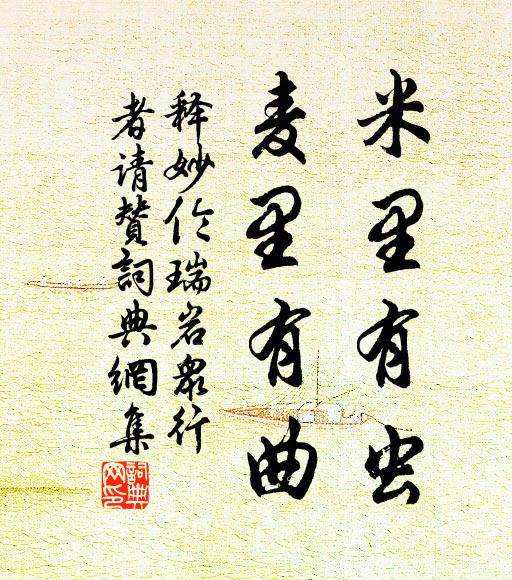 米里有虫
麦里有曲
释妙伦瑞岩众行
者请赞词典网集
词典网印